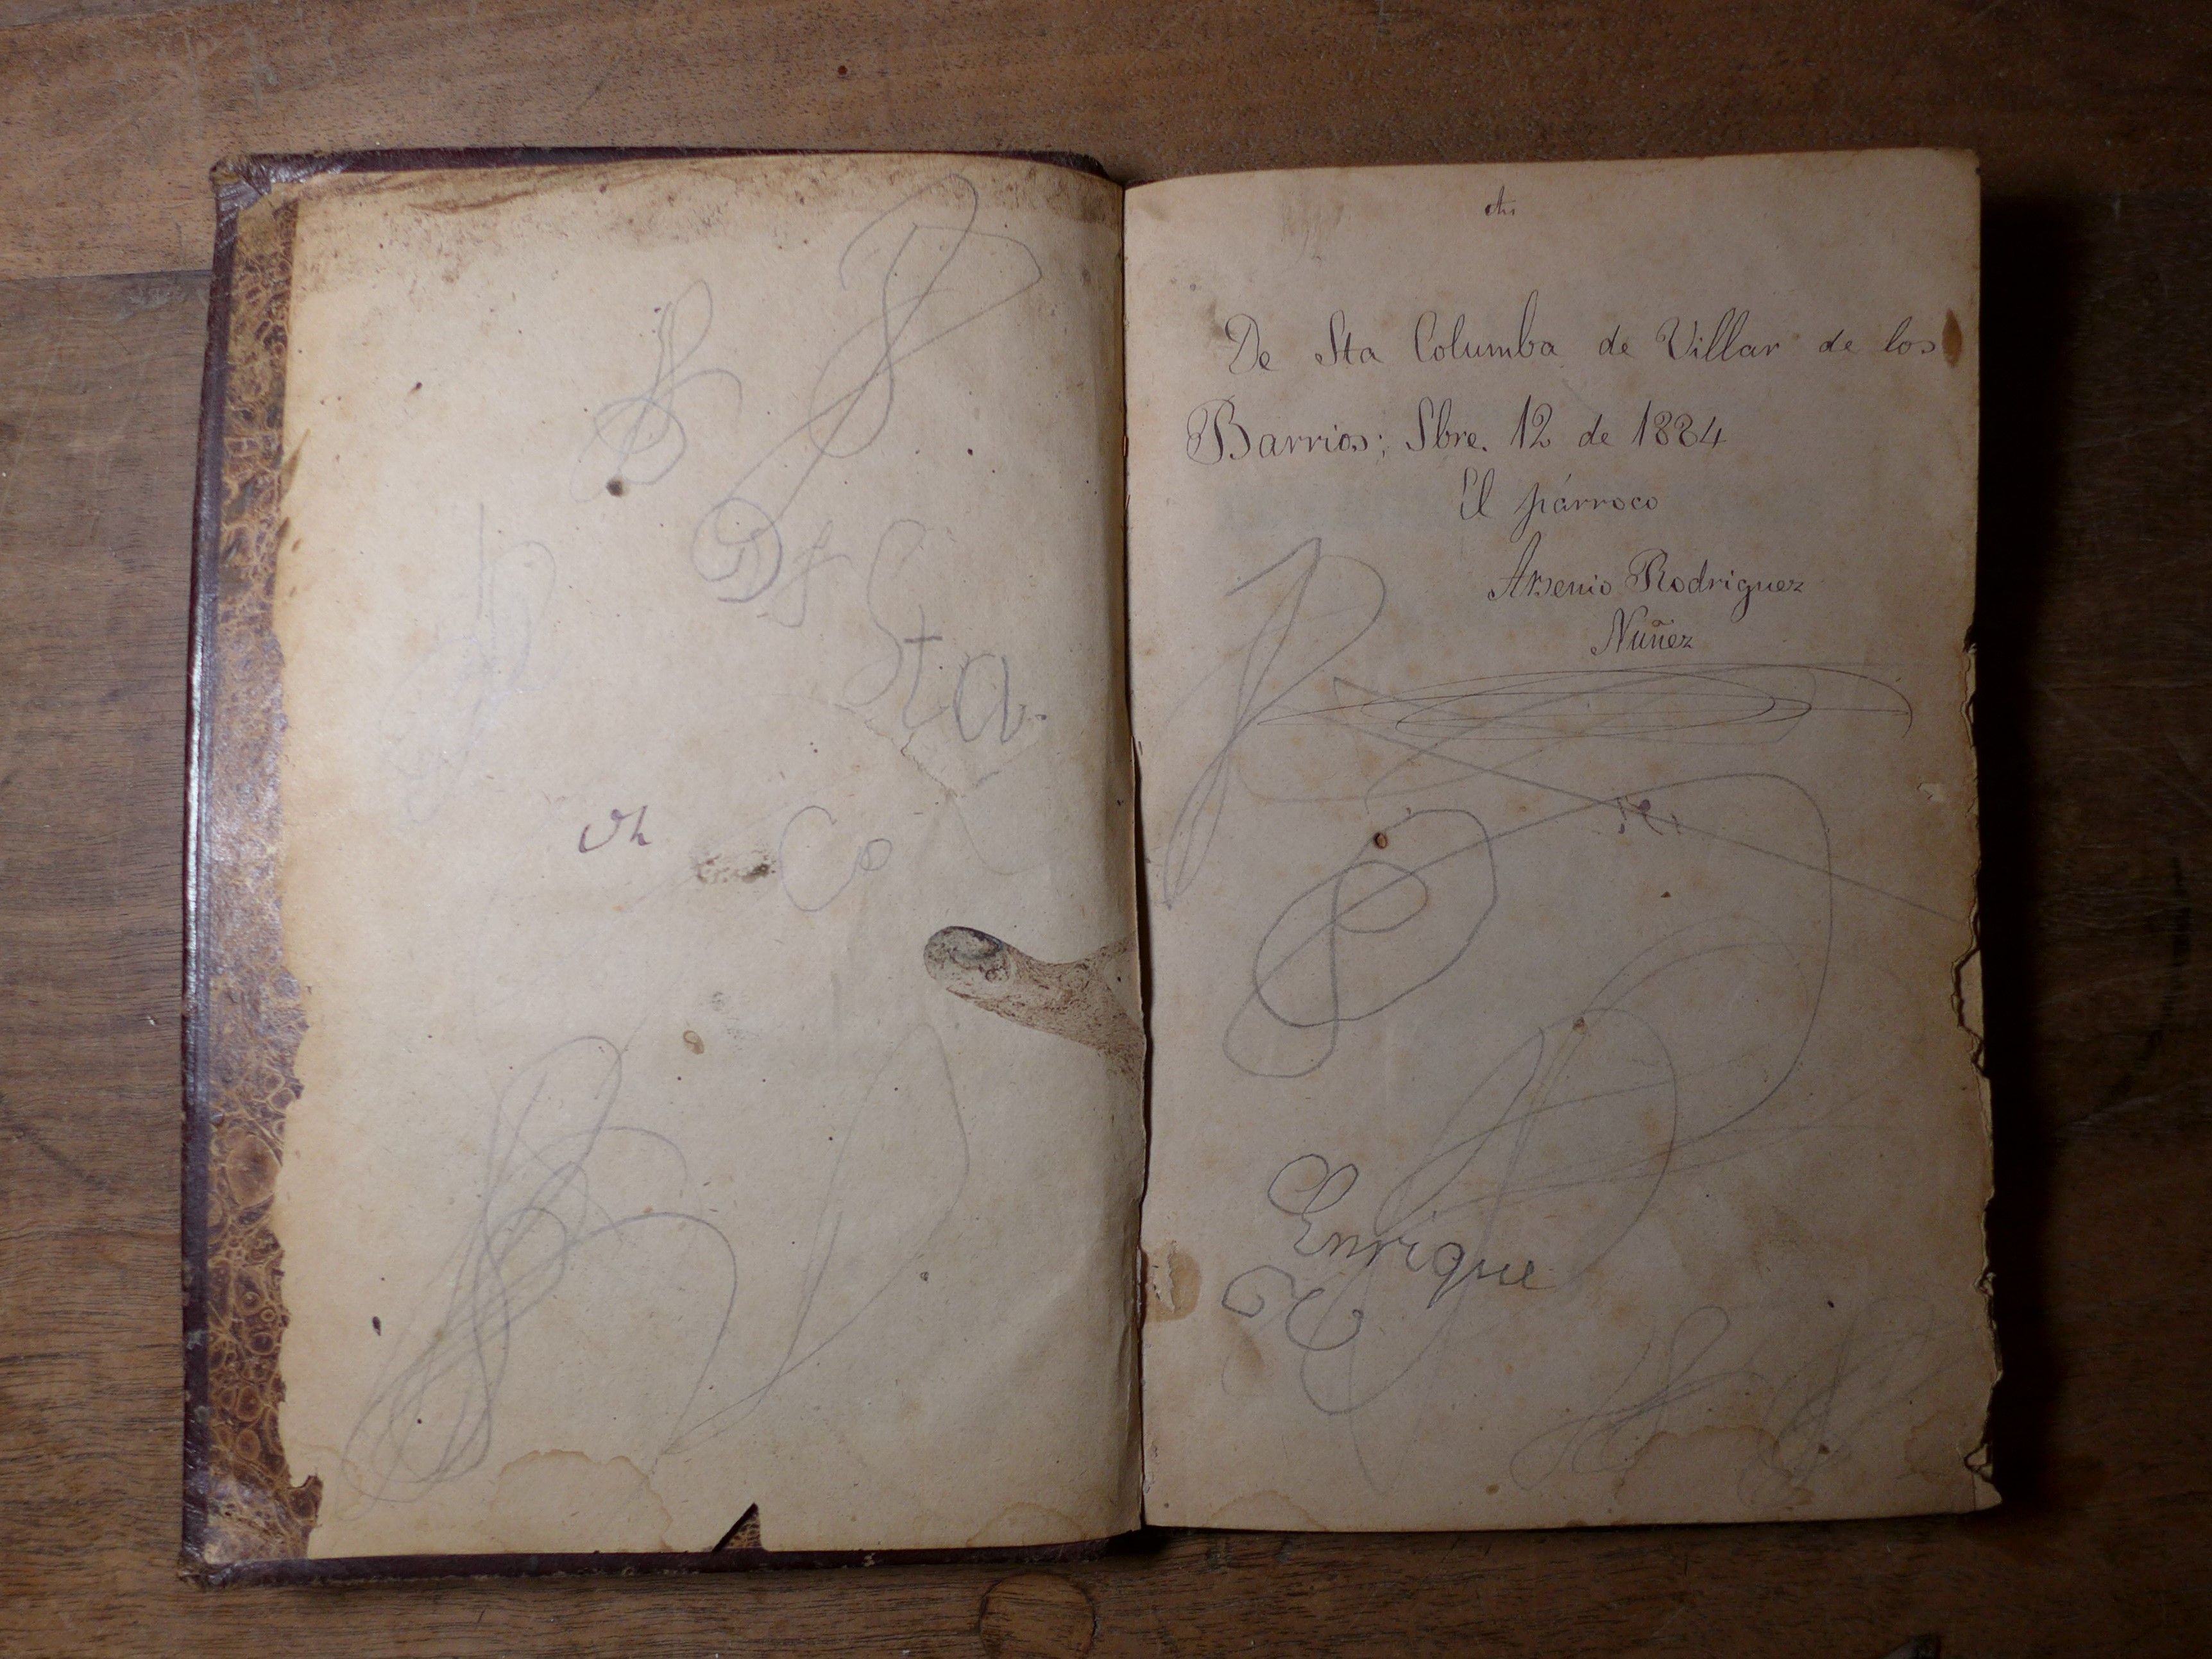 De Sta
Co
De Sta Columba de Villar de los
Barrios; Sbre. 12 de 1884
El párroco
Arsenio Rodriguez
Nuñez
Enrique